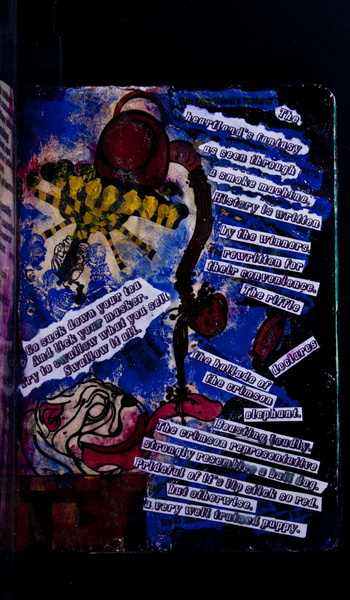 The
heartland's fantasy
as seen through
a smoke machine,
History is written
by the winners,
rewritten for
their convenience.
The riffle
declares
The ballads of
the crimson
elephant.
Boasting loudly,
The crimson representative
strongly resembles a bull dog.
Prideful of it's lip stick so red,
but otherwise,
a very well trained puppy.
Go suck down your tea
And lick your masker.
Try to swallow what you sell
Swallow it all.